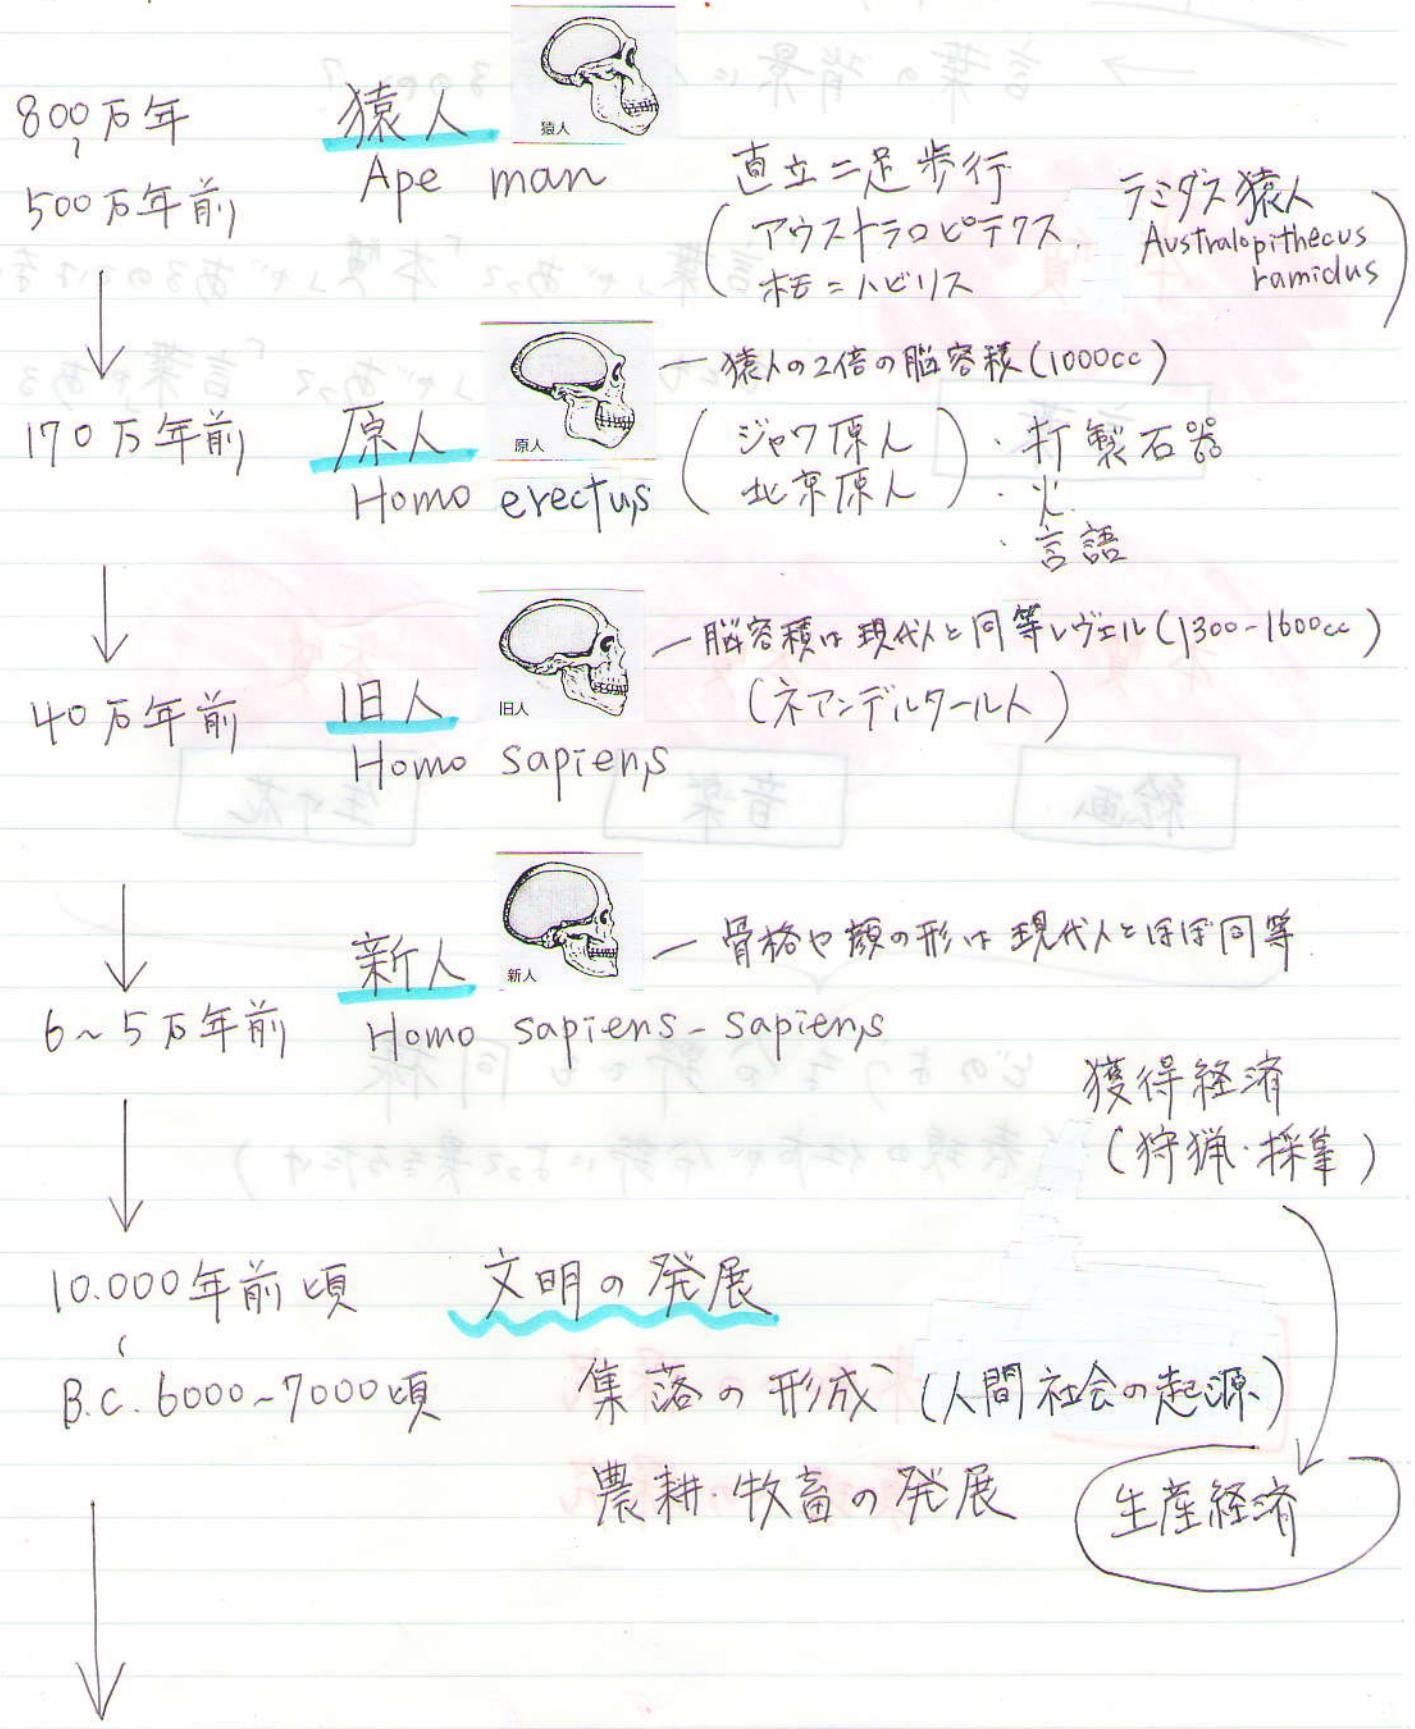 800万年
〜
500万年前
猿人
Ape man
猿人
直立二足歩行
(アウストラロピテクス.
ホモ=ハビリス
ラミダス猿人
Australopithecus
ramidus)
170万年前
原人
Homo erectus
原人
— 猿人の2倍の脳容積(1000cc)
(ジャワ原人
北京原人)
・打製石器
・火.
・言語
40万年前
旧人
Homo sapiens
旧人
— 脳容積は現代人と同等レヴェル(1300-1600cc)
(ネアンデルタール人)
6~5万年前
新人
Homo sapiens-sapiens
新人
— 骨格や顔の形は現代人とほぼ同等.
獲得経済
(狩猟・採集)
10.000年前頃
〜
B.C. 6000~7000頃
文明の発展
集落の形成 (人間社会の起源)
農耕・牧畜の発展
生産経済